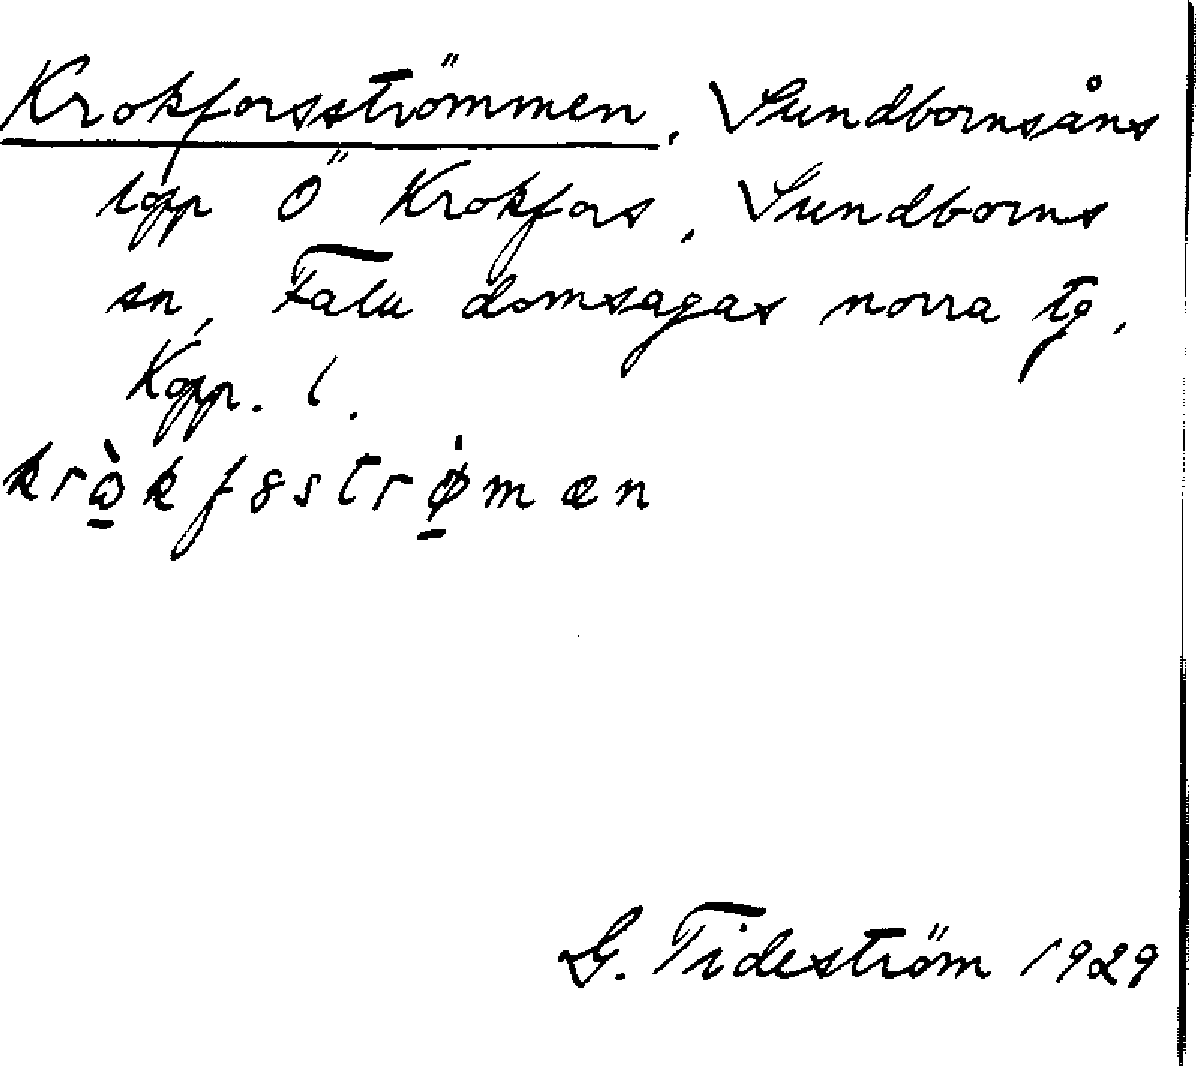 Krokforsströmmen. Sundbornsåns
lopp Ö Krokfors, Sundborns
sn, Falu domsagas norra tg,
Kopp. l.
kròkfsstrǿmæn
G. Tideström 1929